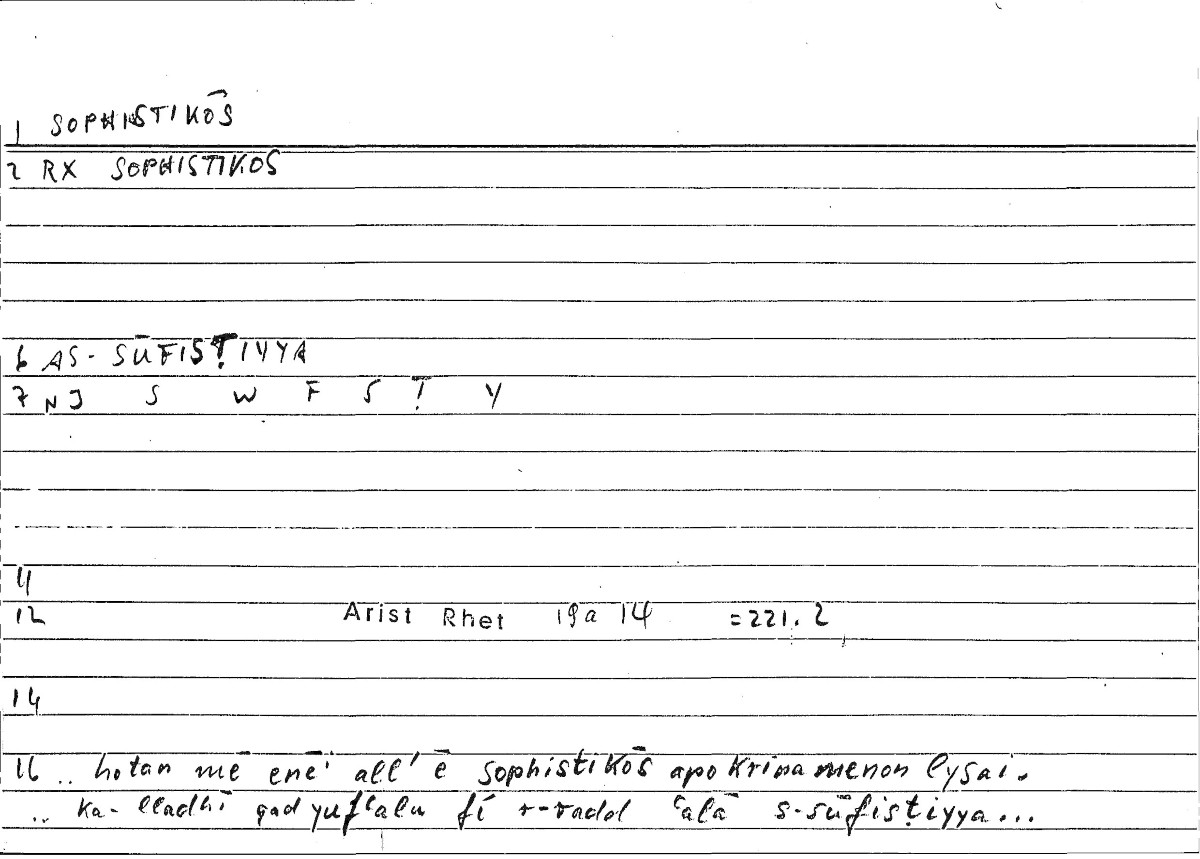 1 SOPHISTIKŌS
2 RX SOPHISTIKOS
6 AS-SŪFISṬIYYA
7 NJ S W F S Ṭ Y
4
12 Arist Rhet 19a 14 =221.2
14
16 .. hotan mē enē' all' ē sophistikōs apokrinamenon lysai.
.. ka-lladhī qad yufʿalu fī r-radd ʿalā s-sūfisṭiyya...